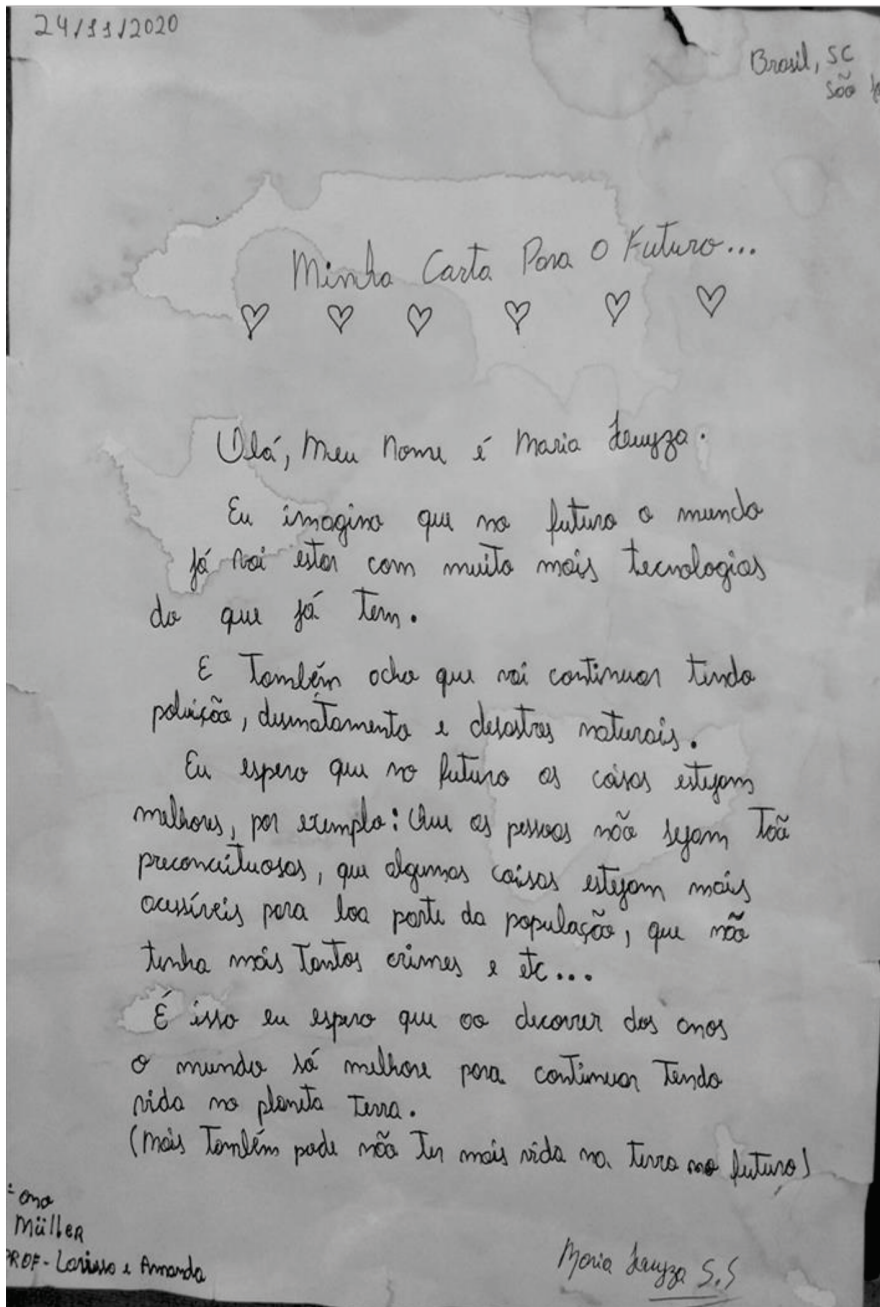 24/11/2020
Brasil, SC
São
Minha Carta Para O Futuro...
Olá, Meu Nome é Maria
Eu imagino que no futuro o mundo
já vai estar com muito mais tecnologias
do que já tem.
E Também acho que vai continuar tendo
poluição, desmatamento e desastres naturais.
Eu espero que no futuro as coisas estejam
melhores, por exemplo: Que as pessoas não sejam Toã
preconceituosas, que algumas coisas estejam mais
acessíveis para boa parte da população, que não
tenha mais Tantos crimes e etc...
É isso eu espero que ao decorrer dos anos
o mundo só melhore para continuar Tendo
vida no planeta Terra.
(Mais Também pode não Ter mais vida na terra no futuro)
ano
Müller
PROF - Larissa e Amanda
Maria S.S